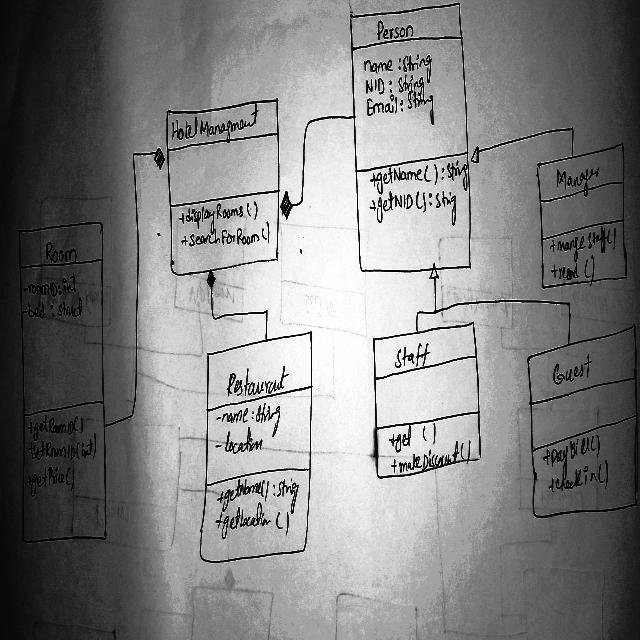 Person
name : String
NID : String
Email : String
+getName() : String
+getNID() : String
Hotel Managment
+displayRooms()
+searchForRoom()
Manager
+mange Staff()
Room
-roomID: int
+getRoomID()
+getPrice()
Restaurant
-name: String
-location
+getName() : String
+getLocation()
Staff
+get ()
+makeDiscount()
Guest
+payBill()
+checkin()